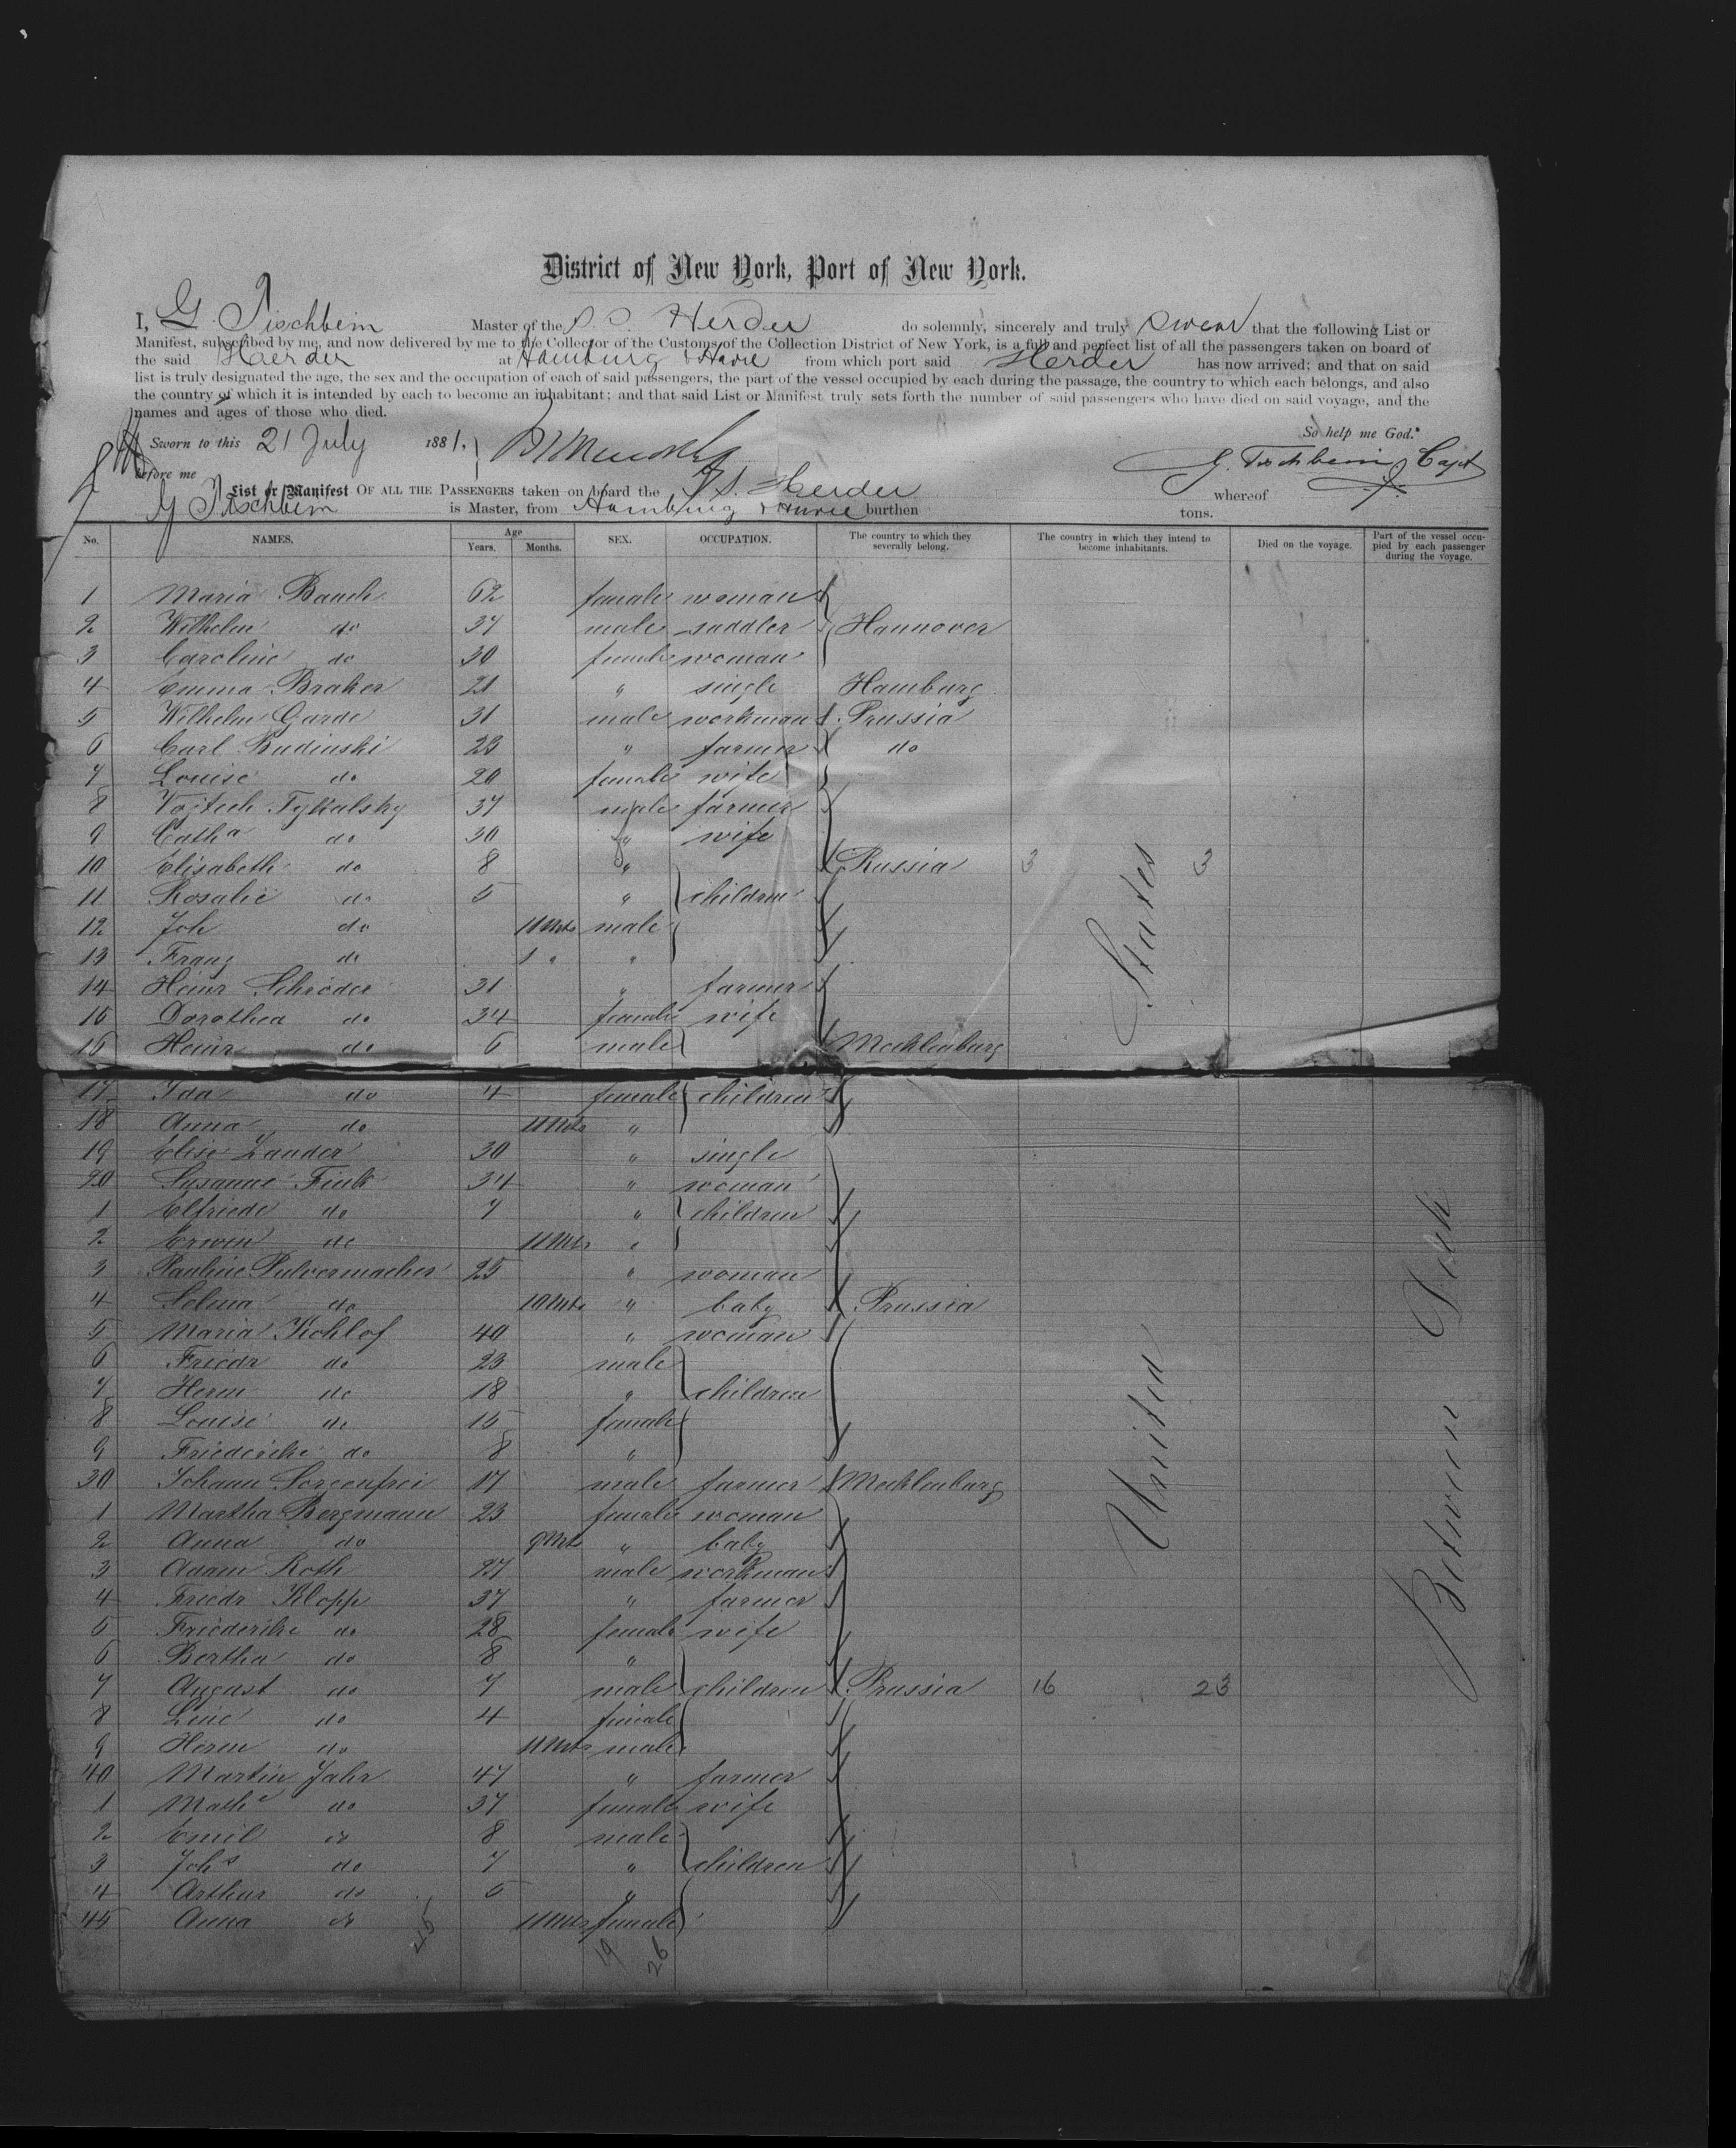 District of New York, Port of New York.
I, G. Tischbein Master of the S. S. Herder do solemnly, sincerely and truly swear that the following List or
Manifest, subscribed by me, and now delivered by me to the Collector of the Customs of the Collection District of New York, is a full and perfect list of all the passengers taken on board of
the said Herder at Hamburg & Havre from which port said Herder has now arrived; and that on said
list is truly designated the age, the sex and the occupation of each of said passengers, the part of the vessel occupied by each during the passage, the country to which each belongs, and also
the country of which it is intended by each to become an inhabitant; and that said List or Manifest truly sets forth the number of said passengers who have died on said voyage, and the
names and ages of those who died.
So help me God.
Sworn to this 21 July 1881,
before me
G. Tischbein Capt
List or Manifest OF ALL THE PASSENGERS taken on board the S. S. Herder whereof
G Tischbein is Master, from Hamburg & Havre burthen tons.
No. NAMES. Age Years. Months. SEX. OCCUPATION. The country to which they severally belong. The country in which they intend to become inhabitants. Died on the voyage. Part of the vessel occupied by each passenger during the voyage.
1 Maria Bauch 62 female woman
2 Wilhelm do 37 male saddler Hannover
3 Caroline do 30 female woman
4 Emma Braker 21 " single Hamburg
5 Wilhelm Garde 31 male workman Prussia
6 Carl Budinski 23 " farmer do
7 Louise do 20 female wife
8 Vojtech Tykalsky 37 male farmer
9 Catha do 30 " wife
10 Elisabeth do 8 " Russia 3 3
11 Rosalie do 5 " children
12 Joh do 11 Mts male
13 Franz do 1 " "
14 Heinr Schröder 31 " farmer
15 Dorothea do 34 female wife
16 Heinr do 6 male Mecklenburg
17 Ida do 4 female children
18 Anna do 11 Mts "
19 Elise Lauder 30 " single
20 Susanne Fink 34 " woman
1 Elfriede do 7 " children
2 Erwin do 11 Mts "
3 Pauline Pulvermacher 25 " woman
4 Selma do 10 Mts " baby Prussia
5 Maria Kohlof 40 " woman
6 Friedr do 23 male
7 Herm do 18 " children
8 Louise do 15 female
9 Friederike do 8 "
30 Johann Sorgenfrei 17 male farmer Mecklenburg
1 Martha Bergmann 23 female woman
2 Anna do 9 Mts " baby
3 Adam Roth 27 male workman
4 Friedr Klopp 37 " farmer
5 Friederike do 28 female wife
6 Bertha do 8 "
7 August do 7 male children Prussia 16 23
8 Line do 4 female
9 Herm do 11 Mts male
40 Martin Jahr 47 " farmer
1 Mathe do 37 female wife
2 Emil do 8 male
3 Johs do 7 " children
4 Arthur do 5 "
45 Anna do 11 Mts female
45 19 26
United States
Between Deck